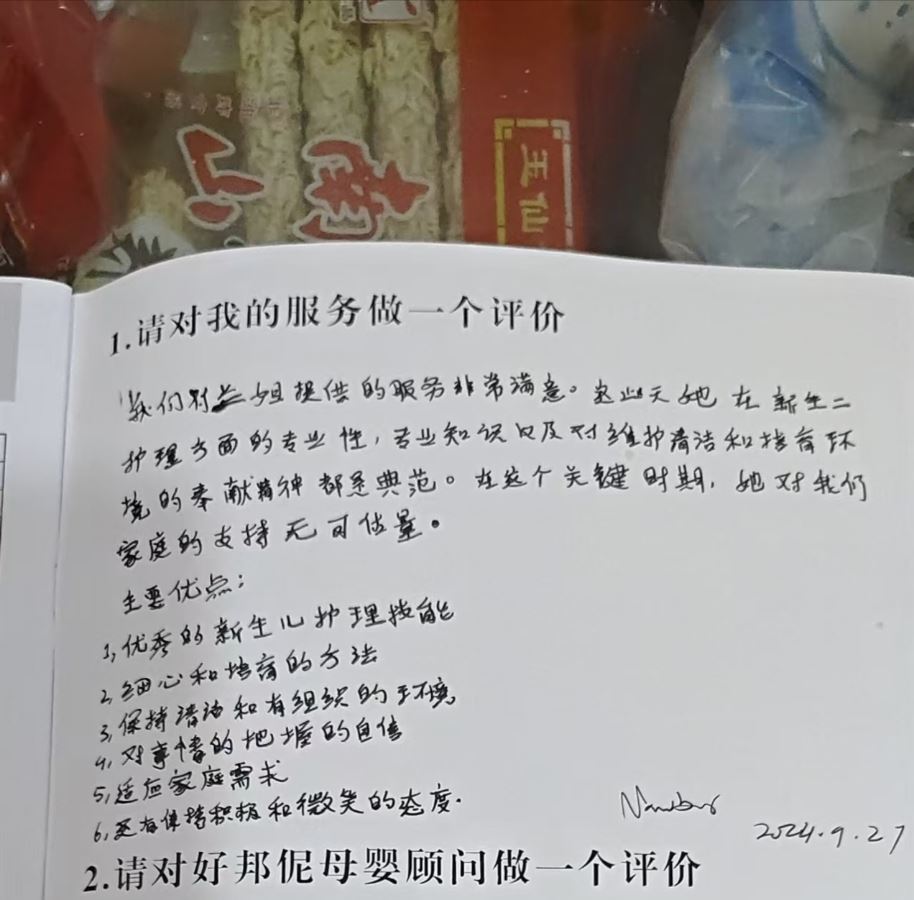 南山
玉仙
1.请对我的服务做一个评价
我们对兰姐提供的服务非常满意。这些天她在新生二
护理方面的专业性，专业知识以及对维护清洁和培育环
境的奉献精神都是典范。在这个关键时期，她对我们
家庭的支持无可估量。
主要优点：
1,优秀的新生儿护理技能
2,细心和培育的方法
3,保持清洁和有组织的环境
4,对事情的把握的自信
5,适应家庭需求
6,还有保持积极和微笑的态度.
2024.9.27
2.请对好邦伲母婴顾问做一个评价